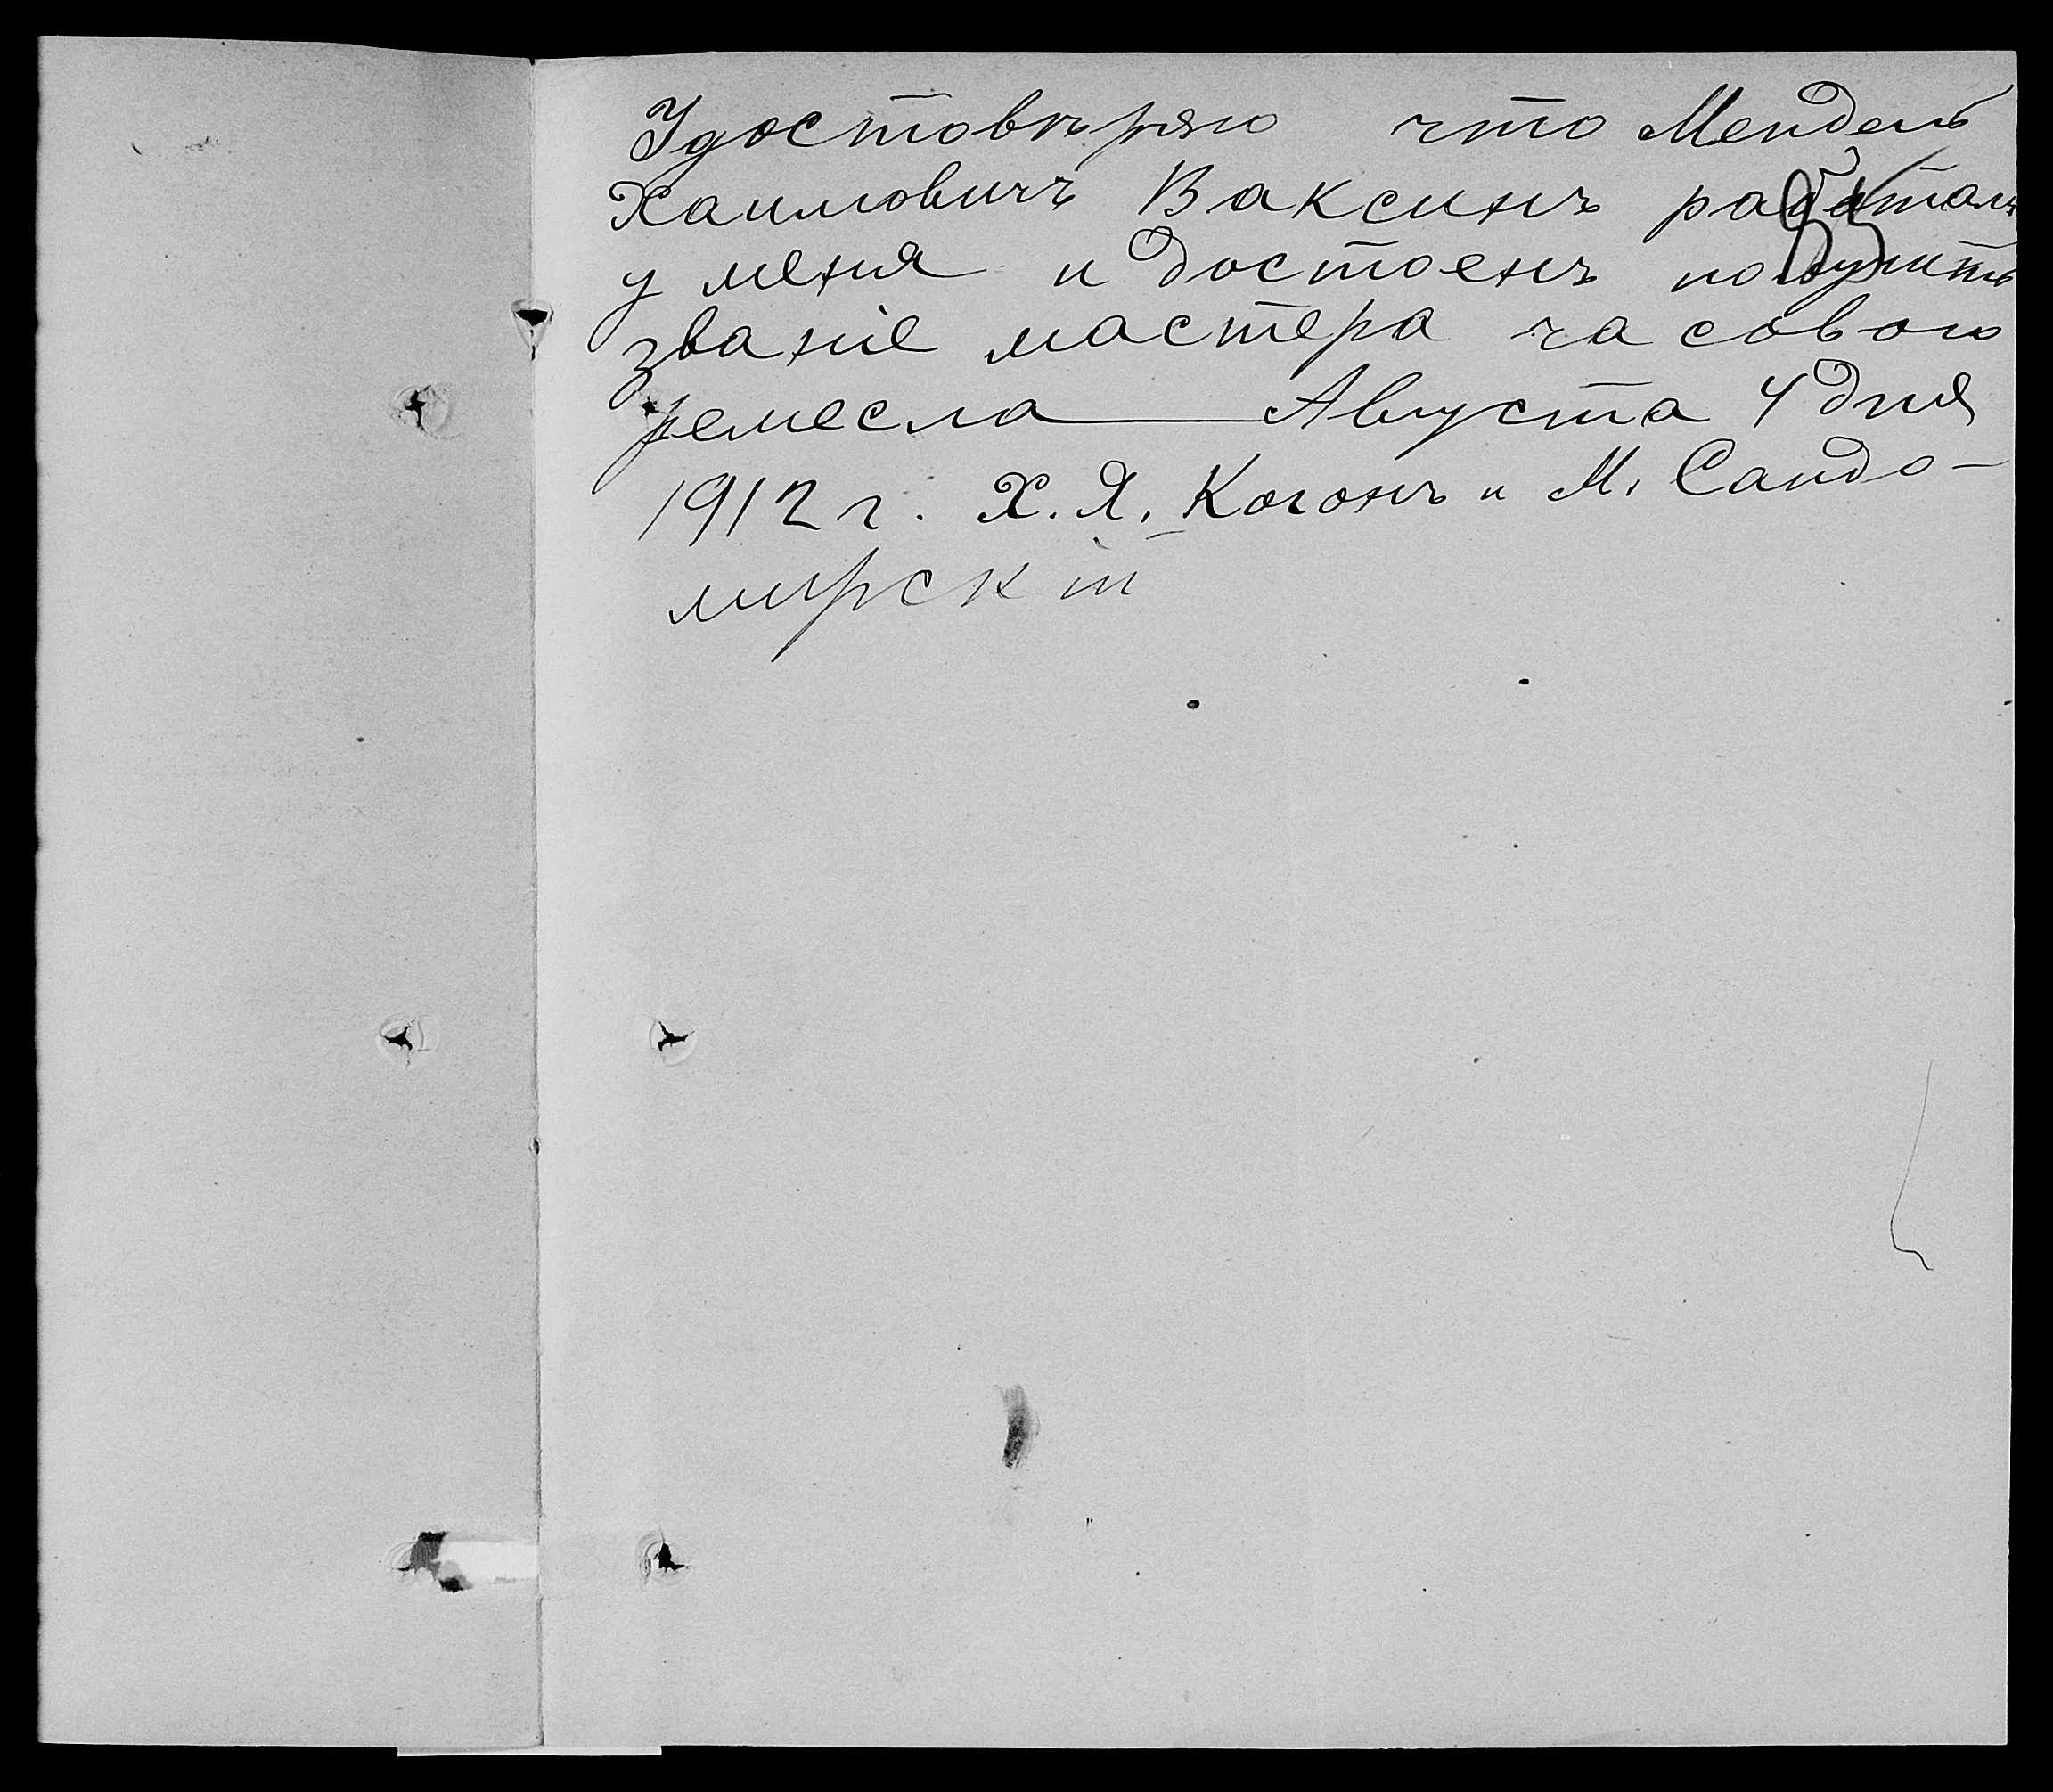 Удостовѣряю что Мендель
Хаимовичъ Ваксинъ работалъ
у меня и достоенъ получить
званіе мастера часового
ремесла Августа 4 дня
1912 г. Х. Я. Когонъ и М. Сандо-
мирскій